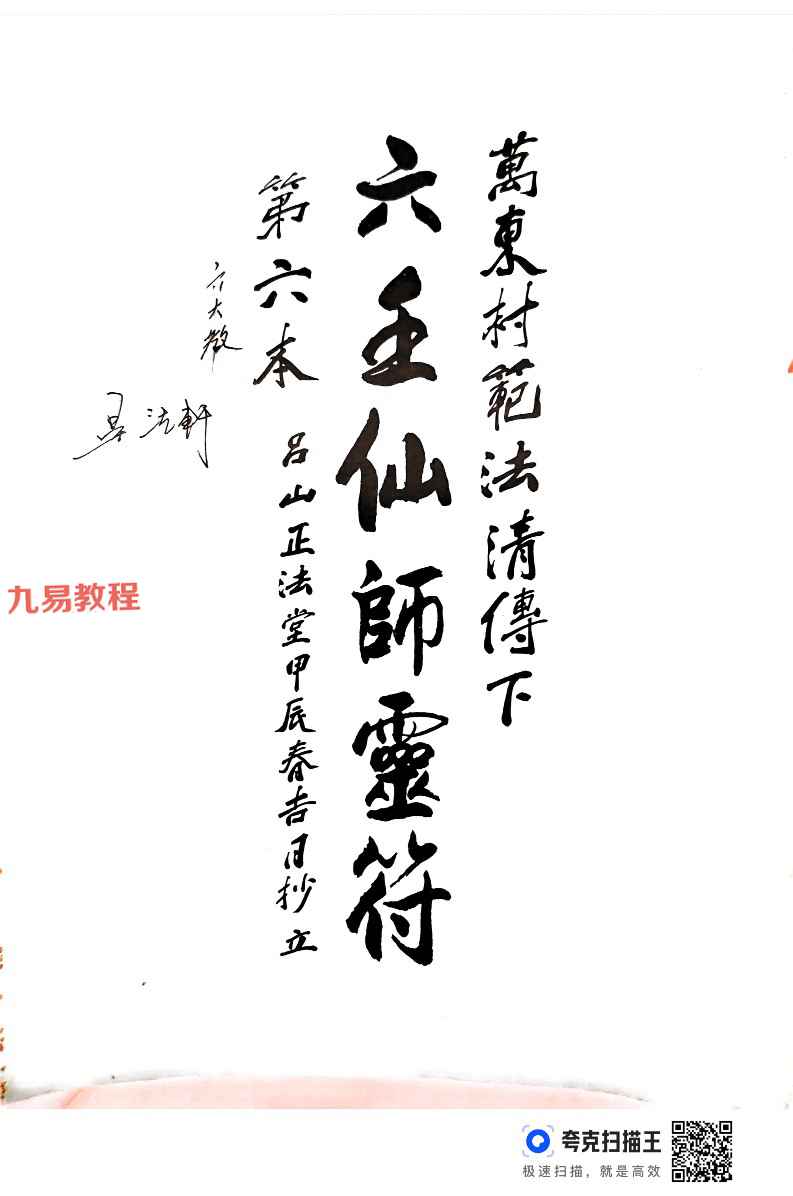 萬東村範法清傳下
六壬仙師靈符
第六本
呂山正法堂甲辰春吉日抄立
六大教
法軒
九易教程
夸克扫描王
极速扫描，就是高效